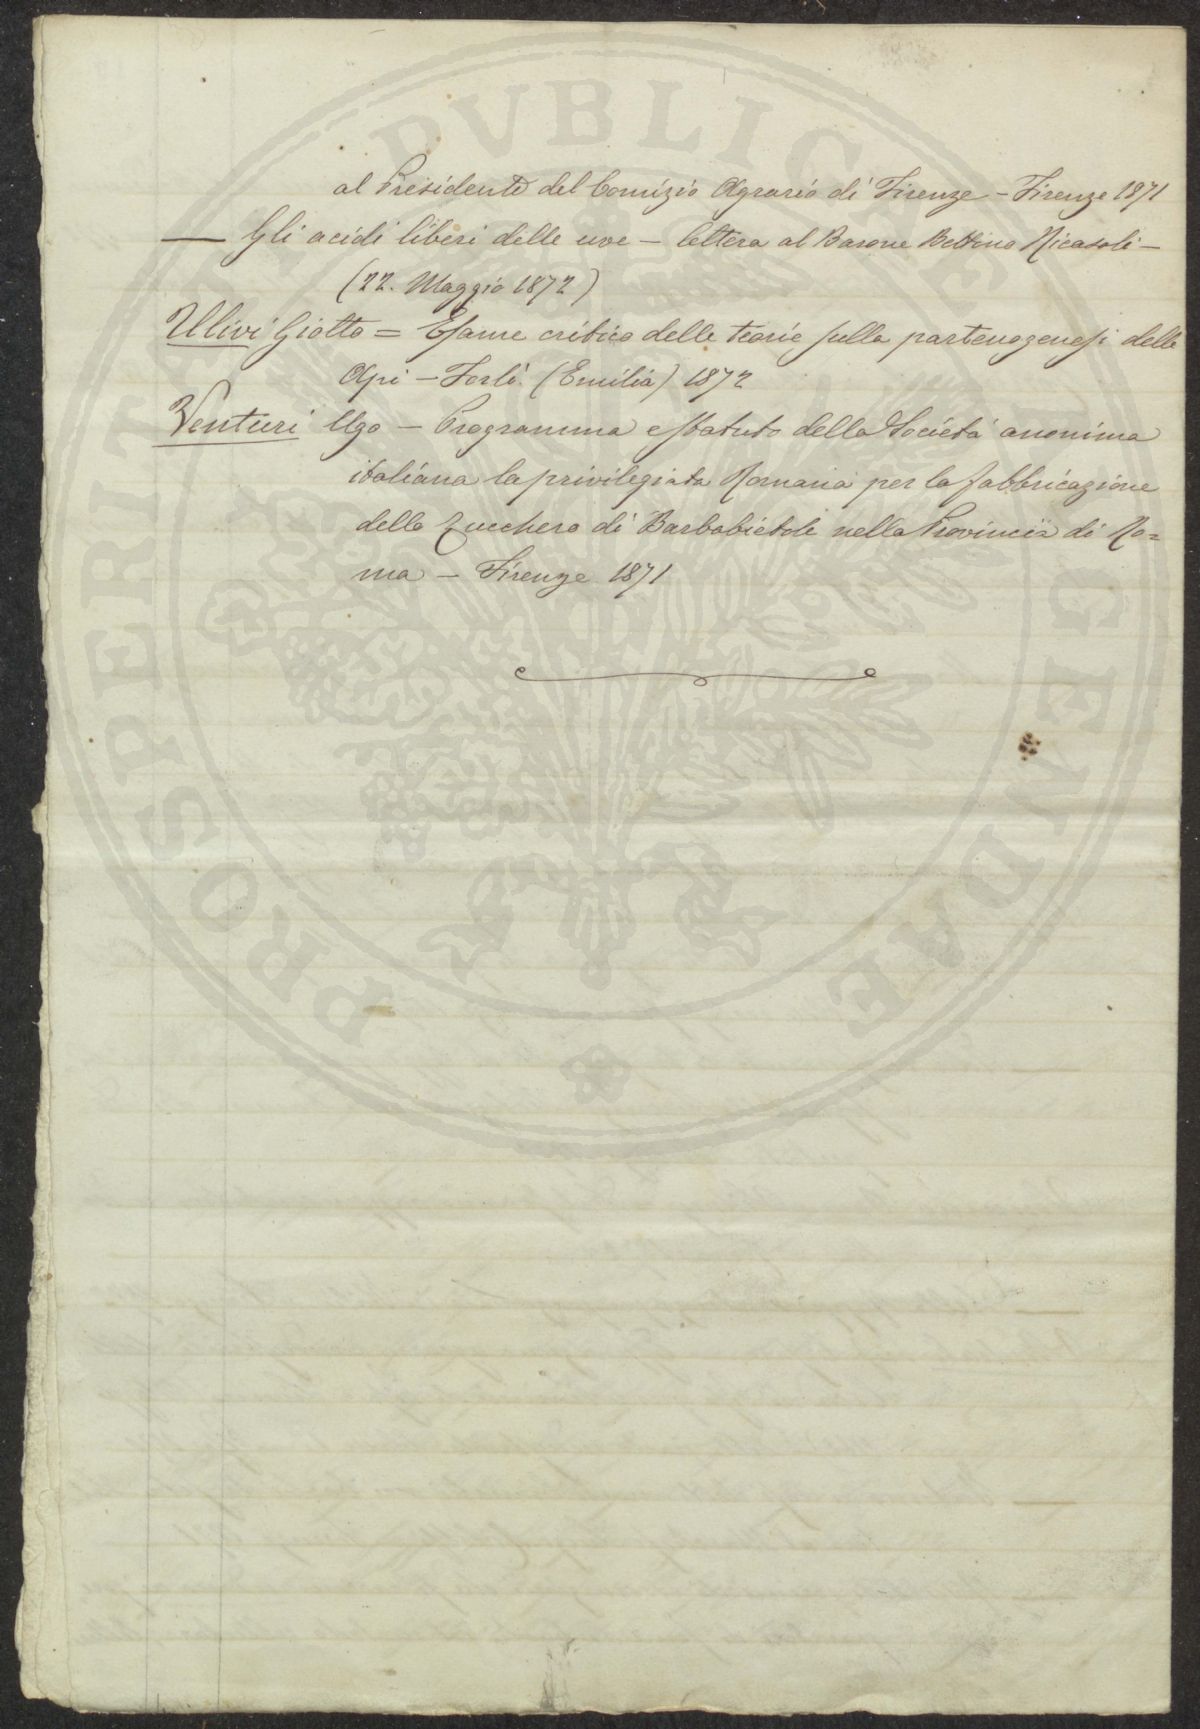 al Presidente del Comizio Agrario di Firenze - Firenze 1871
— Gli acidi liberi delle uve - lettera al Barone Bettino Ricasoli -
(22. Maggio 1872)
Ulivi Giotto = Esame critico delle teorie sulla partenogenesi delle
Api - Forlì. (Emilia) 1872
Venturi Ugo - Programma e statuto della Società anonima
italiana la privilegiata Romana per la fabbricazione
dello Zucchero di Barbabietole nella Provincia di Ro=
ma - Firenze 1871
PROSPERITATI PVBLICAE AVGENDAE